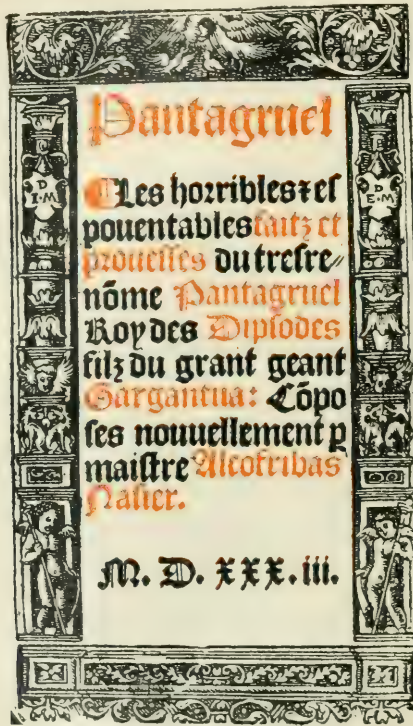 Pantagruel
Les horribles ⁊ eſ
pouentables faitz et
proueſſes du treſre⸗
nõme Pantagruel
Roy des Dipſodes
filz du grant geant
Gargantua: Cõpo
ſes nouuellement p
maiſtre Alcofribas
Naſier.
M. D. xxx. iii.
D
I·M
D
E·M